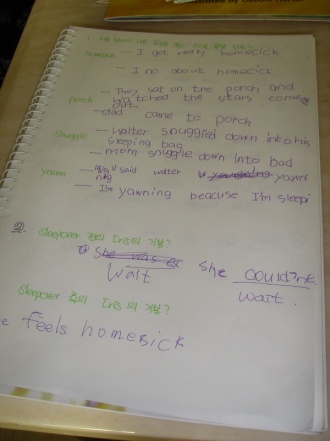 Homesick - I got really homesick
- I no about homecick
- They sat on the porch and
watched the stars come
out.
porch - dad came to porch
Snuggle - walter snuggled down into his
sleeping bag
- mom snuggle down into bad
yawn - said walter yawni
- I'm yawning because I'm sleepi
2. Sleepover 전의 Ira의 기분?
She was
Wait She couldn't
wait.
Sleepover 후의 Ira의 기분?
feels homesick